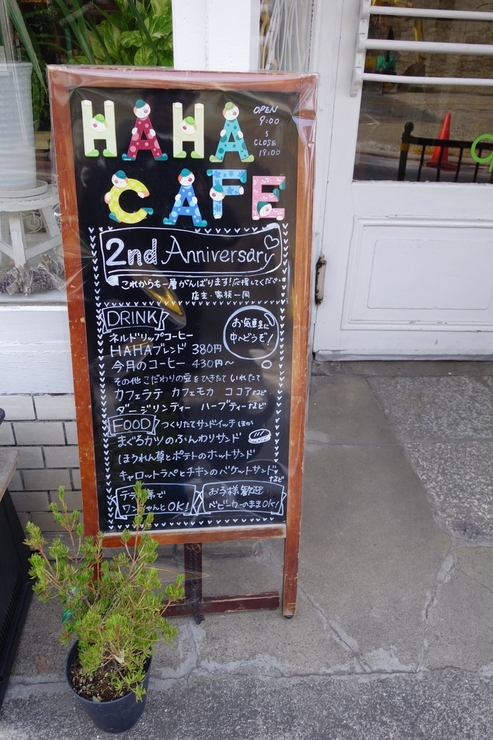 HAHA
CAFE
OPEN
9:00
CLOSE
19:00
2nd Anniversary
これからも一層がんばります!応援してください
店主・家族一同
DRINK
お気軽に
中へどうぞ!
ネルドリップコーヒー
HAHAブレンド 380円
今月のコーヒー 430円〜
その他こだわりの豆をひきたていれたて
カフェラテ カフェモカ ココアなど
ダージリンティー ハーブティーなど
FOOD つくりたてサンドイッチほか
まぐろカツのふんわりサンド
ほうれん草とポテトのホットサンド
キャロットラペとチキンのバケットサンドなど
テラス席で
ワンちゃんとOK!
お子様歓迎
ベビーカーのままOK!